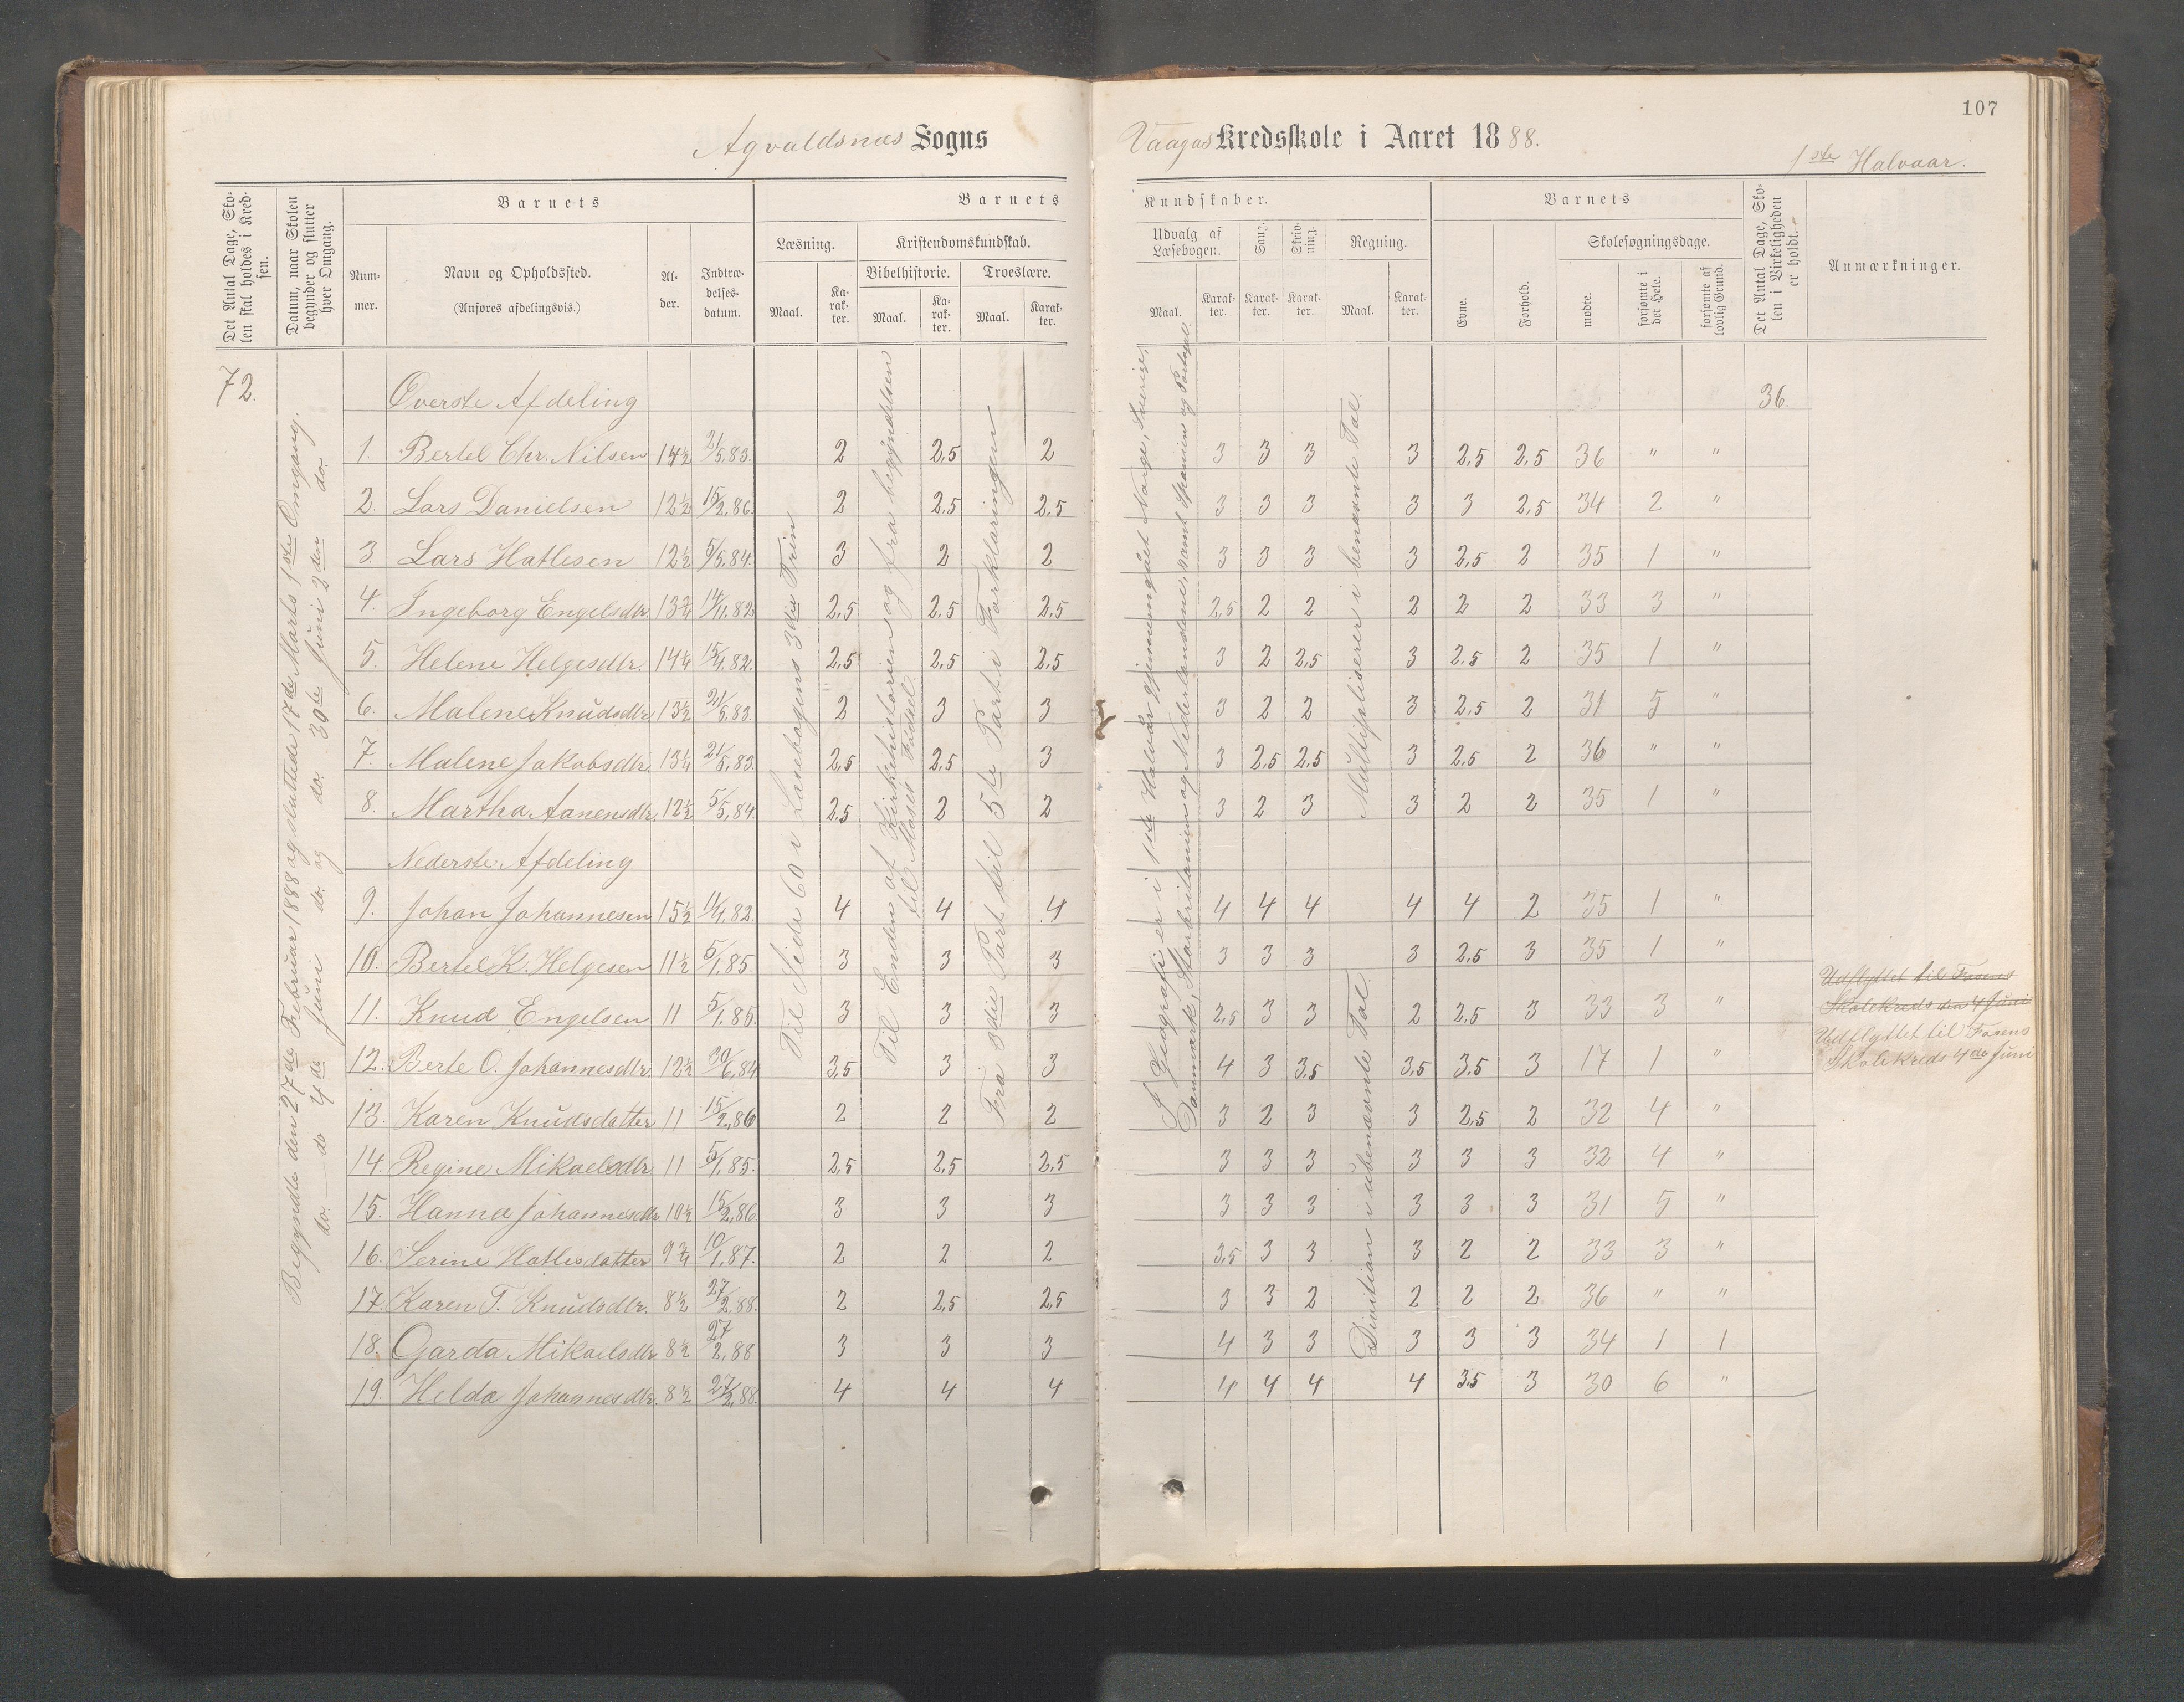 107
Agvaldsnæs Sogns
Vaagas Kredsskole i Aaret 1888.
1ste Halvaar.
Det Antal Dage, Sko-
len skal holdes i Kred-
sen.
Datum, naar Skolen
begynder og slutter
hver Omgang.
Barnets
Num-
mer.
Navn og Opholdssted.
(Anføres afdelingsvis.)
Al-
der.
Indtræ-
delses-
datum.
Barnets
Læsning.
Maal.
Ka-
rak-
ter.
Kristendomskundskab.
Bibelhistorie.
Maal.
Ka-
rak-
ter.
Troeslære.
Maal.
Karak-
ter.
Kundskaber.
Udvalg af
Læsebogen.
Maal.
Karak-
ter.
Sang.
Karak-
ter.
Skriv-
ning.
Karak-
ter.
Regning.
Maal.
Karak-
ter.
Barnets
Evne.
Forhold.
Skolesøgningsdage.
mødte.
forsømte i
det Hele.
forsømte af
lovlig Grund.
Det Antal Dage, Sko-
len i Virkeligheden
er holdt.
Anmærkninger.
72.
36.
Begyndte den 27de Februar 1888 og sluttede 17de Marts 1ste Omgang.
do. do 4de Juni do. og do. 30te Juni 2den do.
Til Side 60 i Læsebogens 3die Trin
Til Enden af Kirkehistorien og fra begyndelsen
til Moses Fødsel.
Fra 3die Part til 5te Part i Forklaringen
I Geografi er i 1ste Halvår gjennemgået Norge, Sverige,
Danmark, Storbritanien og Nederlandene, samt Spanien og Portugal.
Multipliserer i benævnte Tal.
Division i ubenævnte Tal.
Øverste Afdeling
1. Bertel Chr. Nilsen 14½ 21/5.83. 2 2,5 2 3 3 3 3 2,5 2,5 36 " "
2. Lars Danielsen 12½ 15/2.86. 2 2,5 2,5 3 3 3 3 3 2,5 34 2 "
3. Lars Hatlesen 12½ 5/5.84. 3 2 2 3 3 3 3 2,5 2 35 1 "
4. Ingeborg Engelsdtr. 13¾ 14/11.82 2,5 2,5 2,5 2,5 2 2 2 2 2 33 3 "
5. Helene Helgesdtr. 14¼ 15/4.82. 2,5 2,5 2,5 3 2 2,5 3 2,5 2 35 1 "
6. Malene Knudsdtr 13½ 21/5.83. 2 3 3 3 2 2 3 2,5 2 31 5 "
7. Malene Jakobsdtr. 13¼ 21/5.83. 2,5 2,5 3 3 2,5 2,5 3 2,5 2 36 " "
8. Martha Aanensdtr. 12½ 5/5.84. 2,5 2 2 3 2 3 3 2 2 35 1 "
Nederste Afdeling
9. Johan Johannesen 15½ 11/4.82. 4 4 4 4 4 4 4 4 2 35 1 "
10. Bertel K. Helgesen 11½ 5/1.85. 3 3 3 3 3 3 3 2,5 3 35 1 "
11. Knud Engelsen 11 5/1.85. 3 3 3 2,5 3 3 2 2,5 3 33 3 "
Udflyttet til Fosens
Skolekreds den 4 Juni
12. Berte O. Johannesdtr. 12½ 30/6.84 3,5 3 3 4 3 3,5 3,5 3,5 3 17 1 "
Udflyttet til Fosens
Skolekreds 4de Juni
13. Karen Knudsdatter 11 15/2.86 2 2 2 3 2 3 3 2,5 2 32 4 "
14. Regine Mikaelsdtr 11 5/1.85. 2,5 2,5 2,5 3 3 3 3 3 3 32 4 "
15. Hanna Johannesdtr 10½ 15/2.86 3 3 3 3 3 3 3 3 3 31 5 "
16. Serine Hatlesdatter 9¾ 10/1.87. 2 2 2 3,5 3 3 3 2 2 33 3 "
17. Karen T. Knudsdtr. 8½ 27/2.88. 2 2,5 2,5 3 3 2 2 2 2 36 " "
18. Garda Mikaelsdtr 8½ 27/2.88 3 3 3 4 3 3 3 3 3 34 1 1
19. Helda Johannesdtr. 8½ 27/2.88. 4 4 4 4 4 4 4 3,5 3 30 6 "